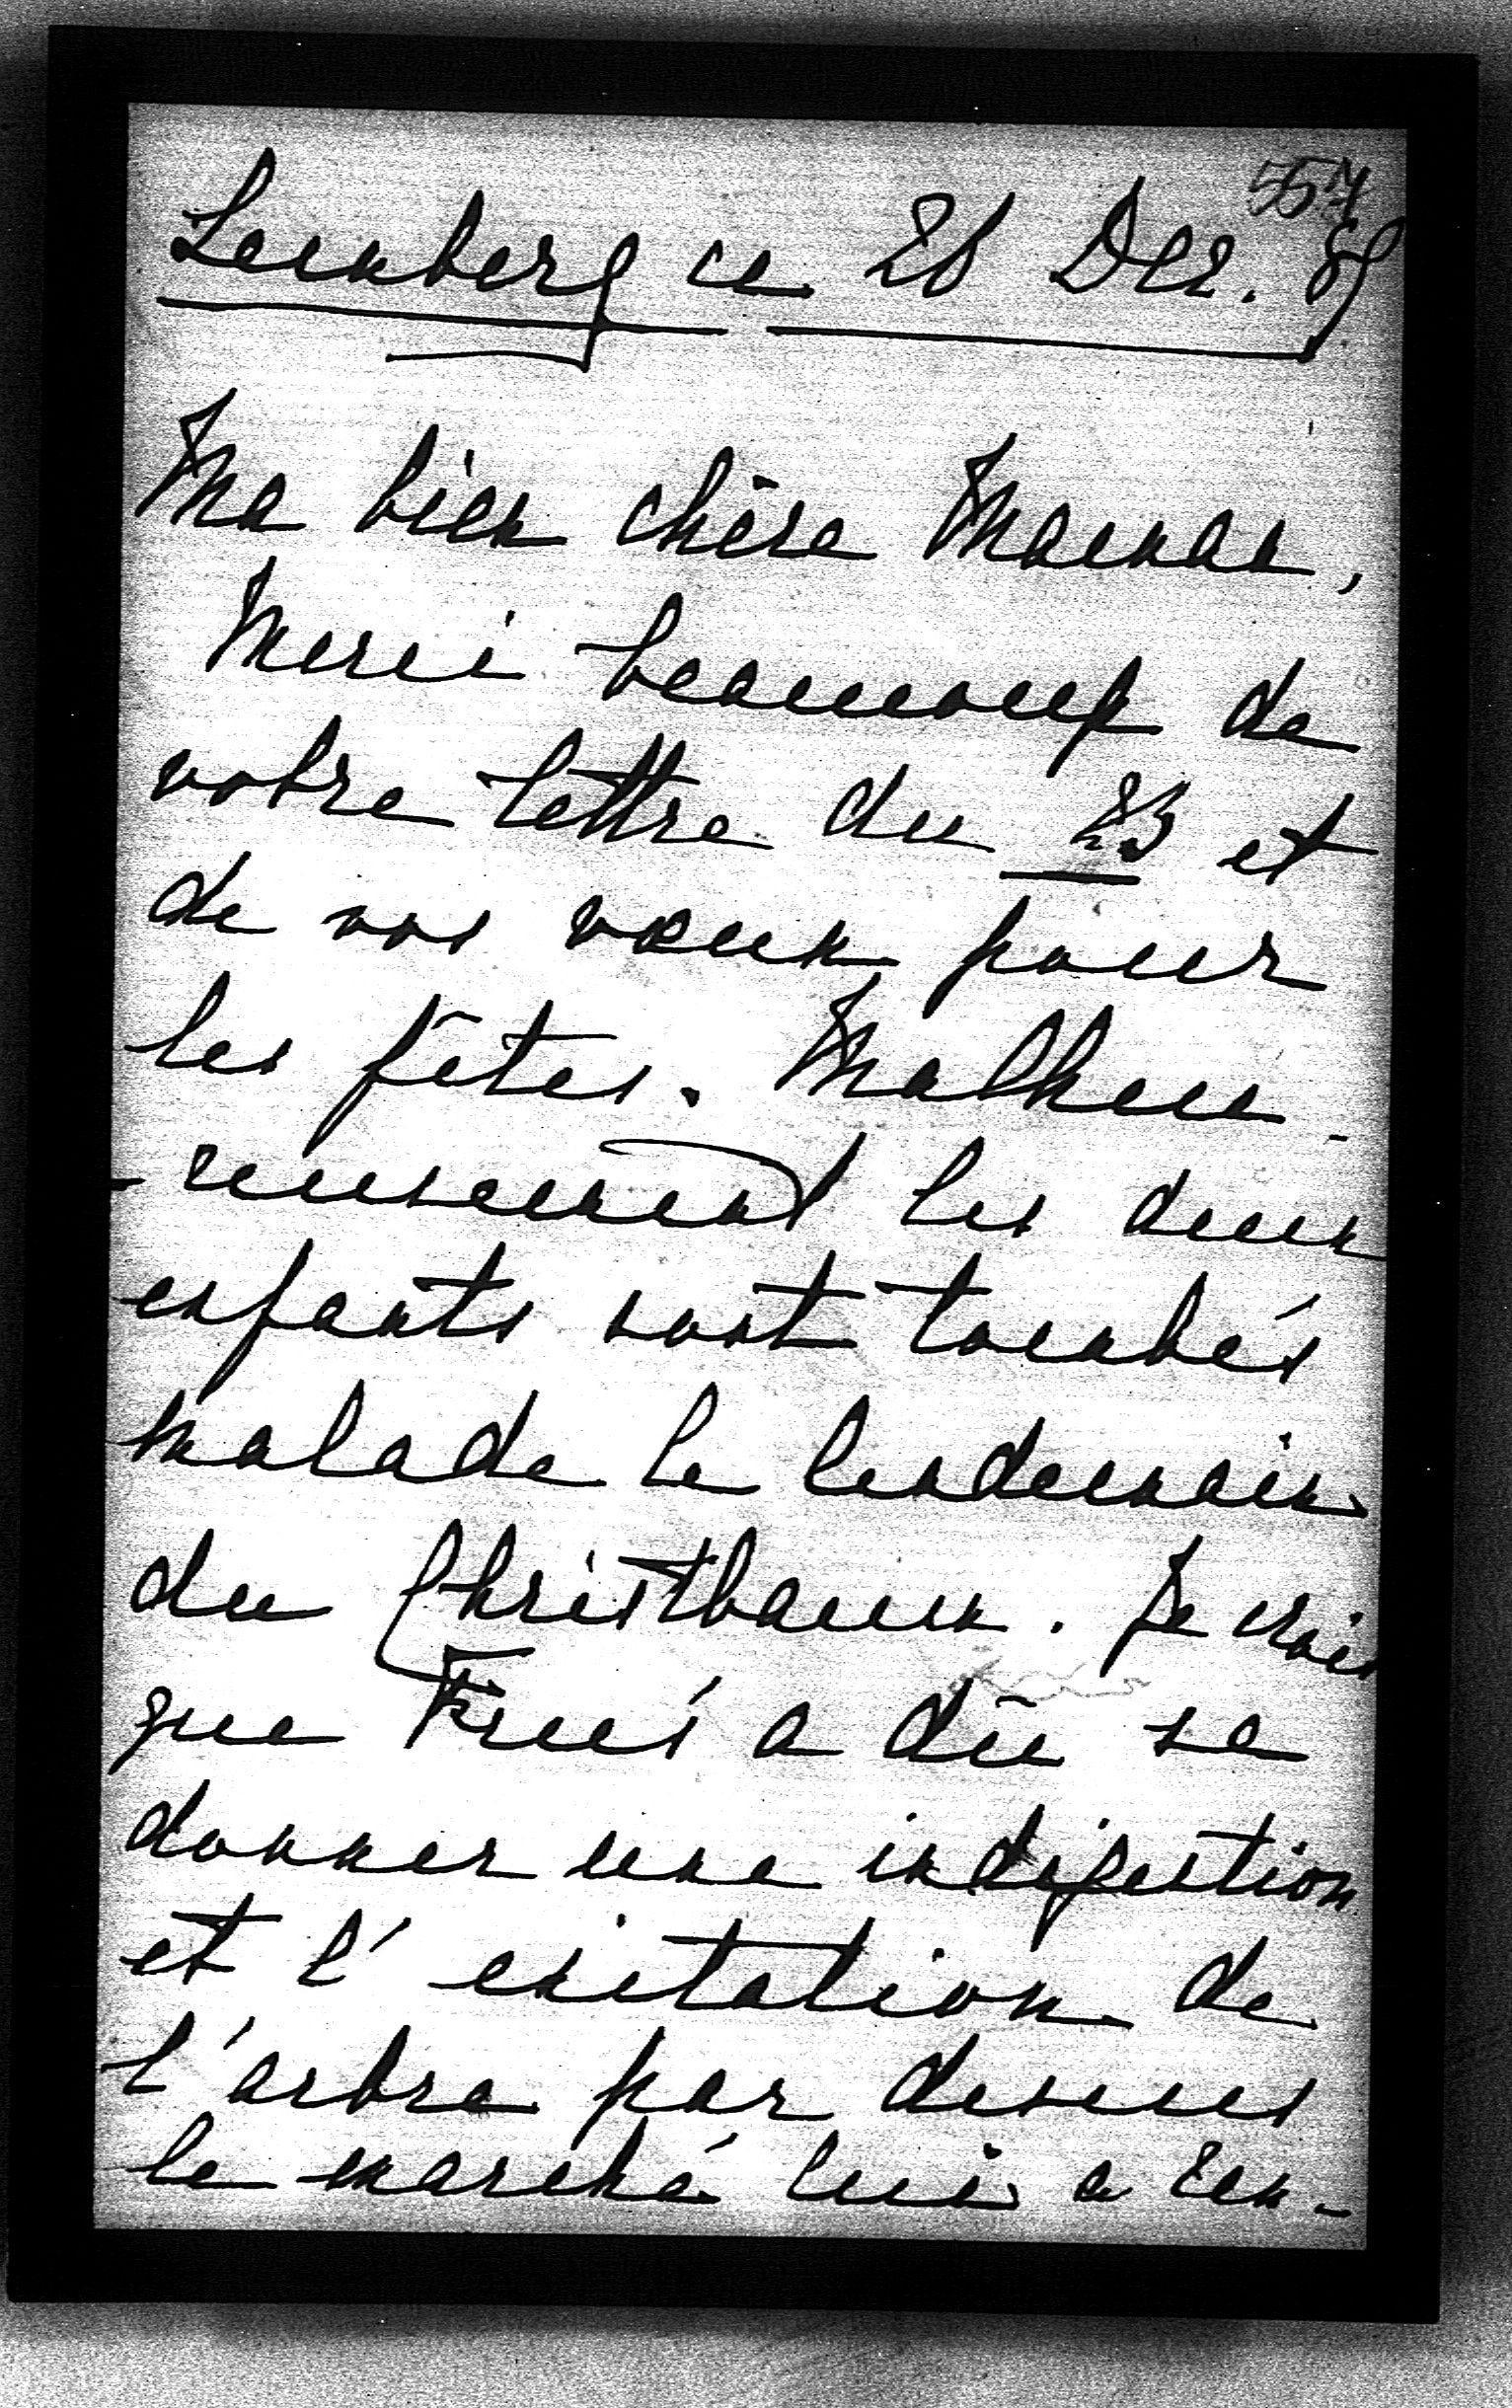 557
Lemberg ce 28 Dec. 89
Ma bien chère Maman,
Merci beaucoup de
votre lettre du 23 et
de vos vœux pour
les fêtes. Malheu-
-reusement les deux
enfants sont tombés
malade le lendemain
du Christbaum. Je crois
que a dû se
donner une indigestion
et l'exitation de
l'arbre par dessus
le marché lui a ren-